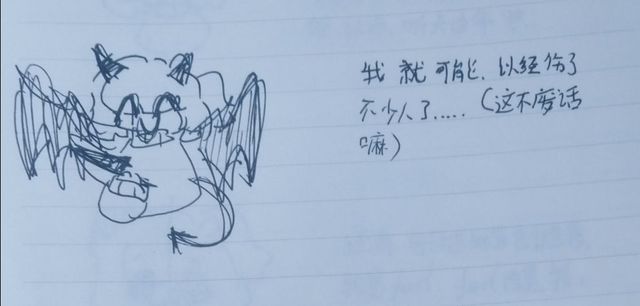 我就可能、以经伤了
不少人了.....（这不废话
嘛）